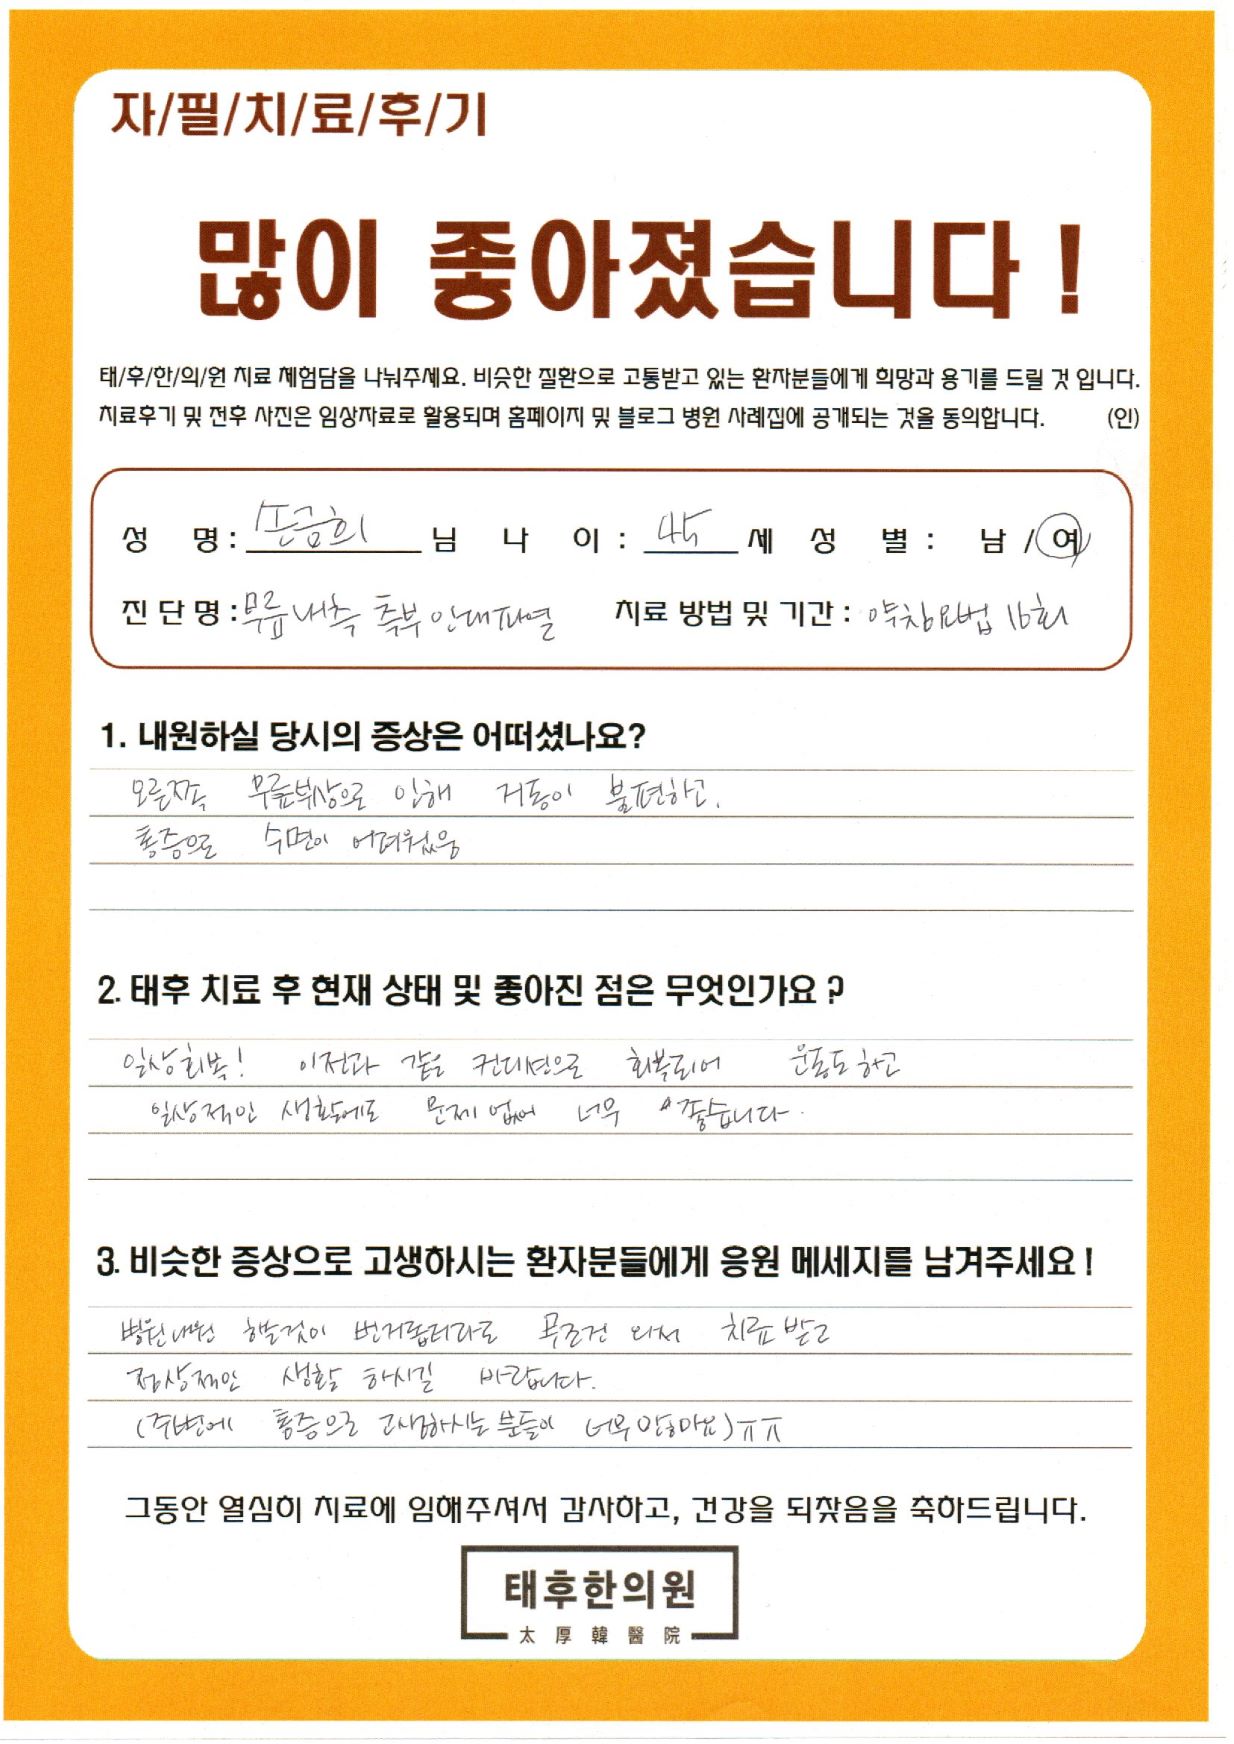 자/필/치/료/후/기
많이 좋아졌습니다!
태/후/한/의/원 치료 체험담을 나눠주세요. 비슷한 질환으로 고통받고 있는 환자분들에게 희망과 용기를 드릴 것 입니다.
치료후기 및 전후 사진은 임상자료로 활용되며 홈페이지 및 블로그 병원 사례집에 공개되는 것을 동의합니다. (인)
성 명 : 손금희 님 나 이 : 45 세 성 별 : 남 / 여
진 단 명 : 무릎내측 측부 인대파열 치료 방법 및 기간 : 약침요법 16회
1. 내원하실 당시의 증상은 어떠셨나요?
오른쪽 무릎부상으로 인해 거동이 불편하고,
통증으로 수면이 어려웠음
2. 태후 치료 후 현재 상태 및 좋아진 점은 무엇인가요 ?
일상회복! 이전과 같은 컨디션으로 회복되어 운동도 하고
일상적인 생활에도 문제 없어 너무 좋습니다.
3. 비슷한 증상으로 고생하시는 환자분들에게 응원 메세지를 남겨주세요 !
병원내원 하는것이 번거롭더라도 무조건 와서 치료 받고
정상적인 생활 하시길 바랍니다.
(주변에 통증으로 고생하시는 분들이 너무 많아요) ㅠㅠ
그동안 열심히 치료에 임해주셔서 감사하고, 건강을 되찾음을 축하드립니다.
태후한의원
太厚韓醫院